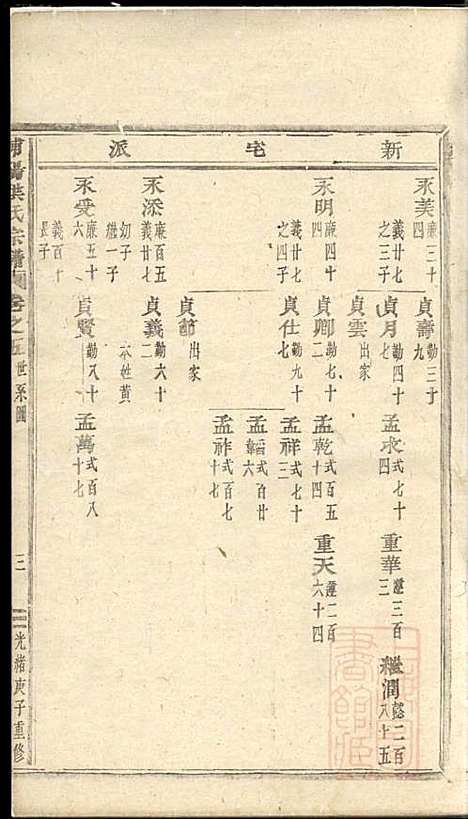 新宅派
永美 廉三十四 義廿七之三子
貞壽 勤三十九
貞月 勤四十七
孟永 式七十四
重華 謹三百三
繼潤 懿二百八十五
貞雲 出家
永明 廉四十四 義廿七之四子
貞卿 勤七十二
孟乾 式百五十四
重天 謹二百六十四
貞仕 勤九十七
孟祥 式七十三
孟韜 式百廿六
孟祚 式百七十七
貞節 出家
永添 廉百五 義廿七幼子 繼一子
貞義 勤六十二 本姓黃
永受 廉五十六 義百十長子
貞賢 勤八十
孟萬 式百八十七
浦陽洪氏宗譜 卷之五 世系圖 三 光緒庚子重修